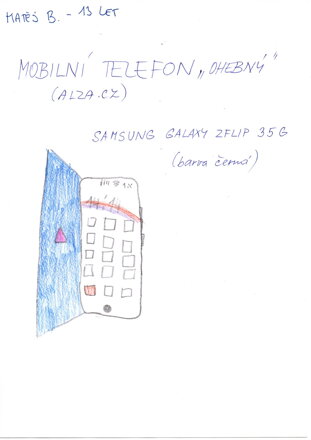 MATĚJ B. - 13 LET
MOBILNÍ TELEFON „OHEBNÝ"
(ALZA.CZ)
SAMSUNG GALAXY ZFLIP 35G
(barva černá)